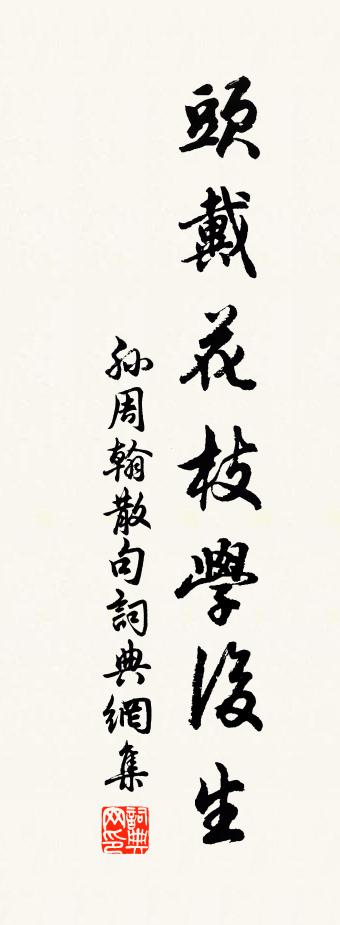 頭戴花枝學後生
孫周翰散句詞典網集
詞典网印